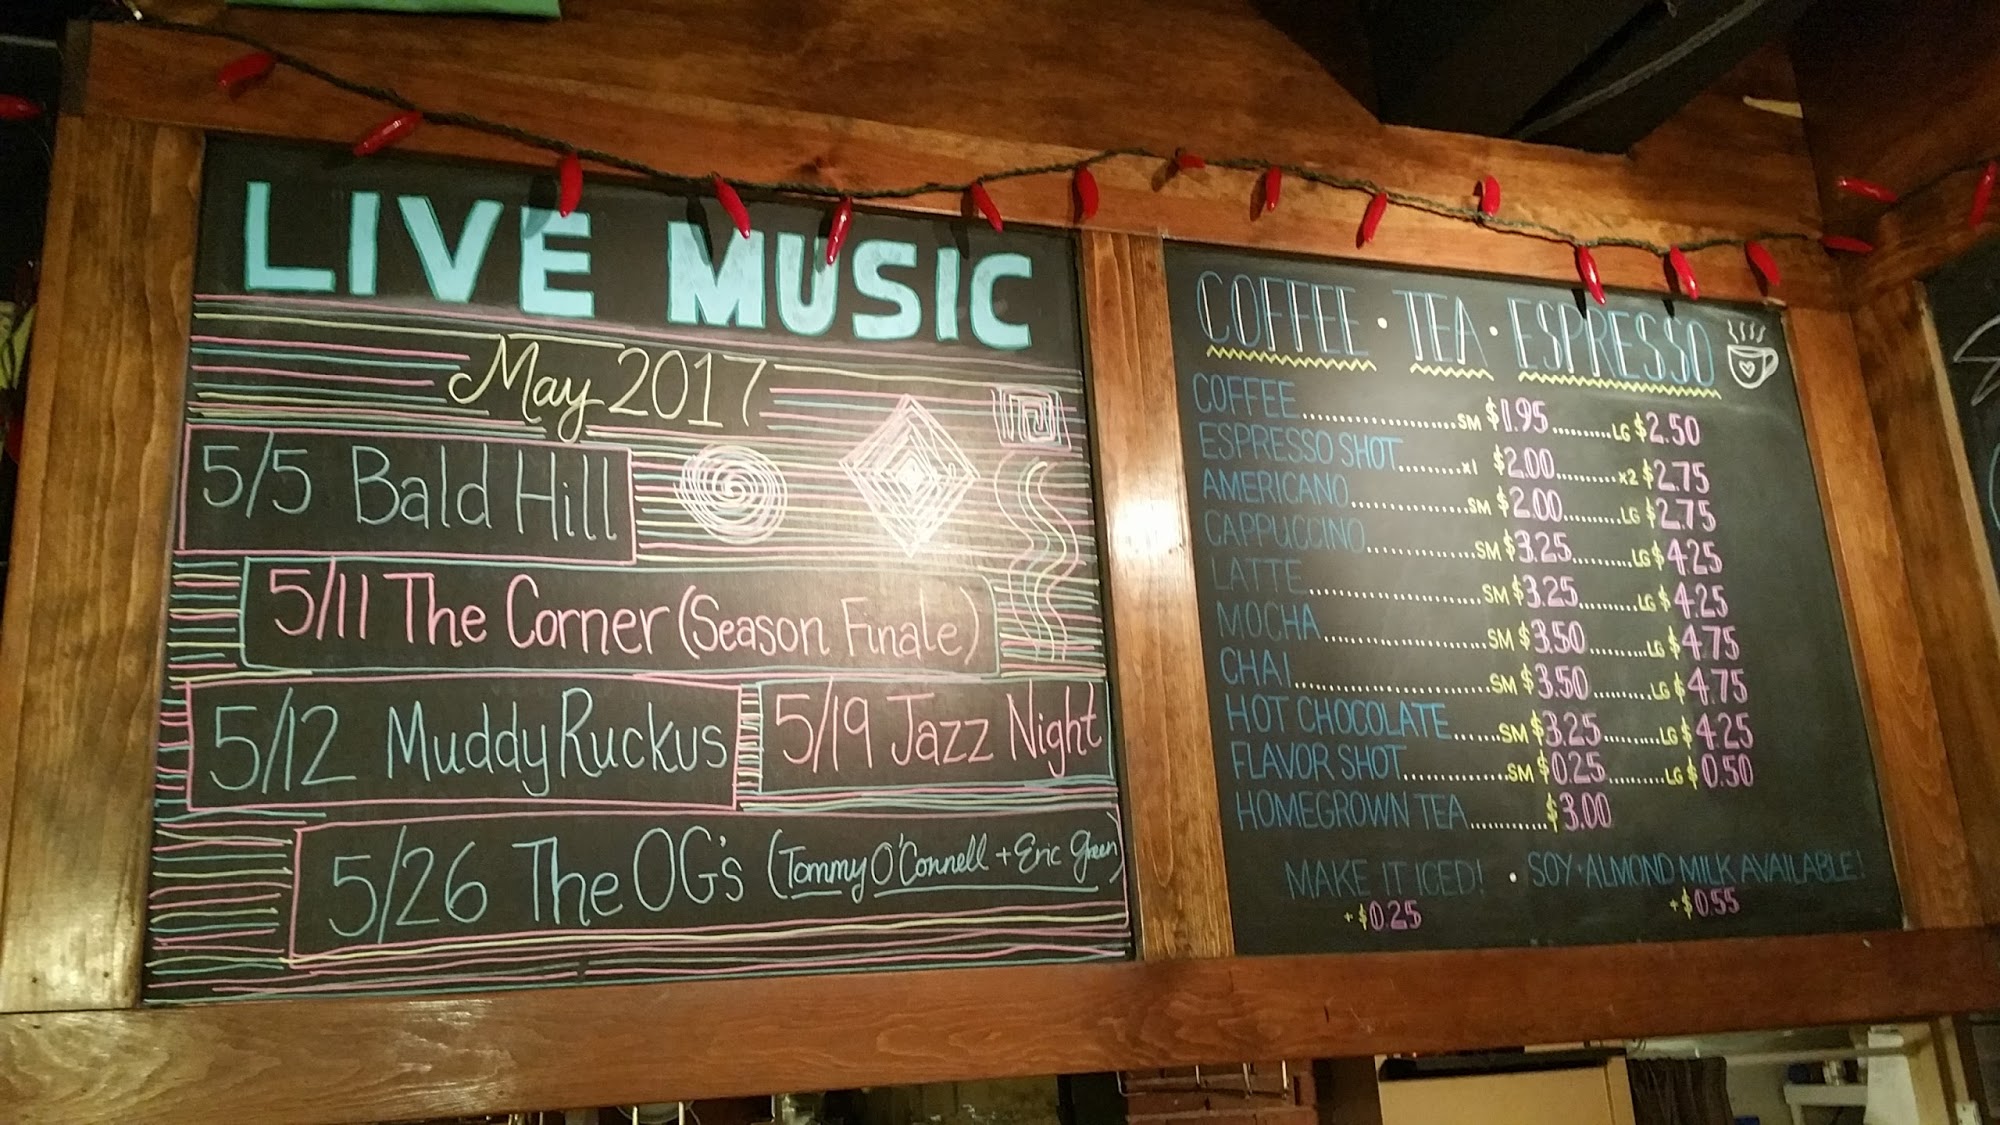 LIVE MUSIC
May 2017
5/5 Bald Hill
5/11 The Corner (Season Finale)
5/12 Muddy Ruckus
5/19 Jazz Night
5/26 The OG's (Tommy O'Connell + Eric Green)
COFFEE • TEA • ESPRESSO
COFFEE.....................SM $1.95..........LG $2.50
ESPRESSO SHOT.........x1 $2.00..........x2 $2.75
AMERICANO................SM $2.00..........LG $2.75
CAPPUCCINO...............SM $3.25..........LG $4.25
LATTE.....................SM $3.25..........LG $4.25
MOCHA.....................SM $3.50..........LG $4.75
CHAI.........................SM $3.50..........LG $4.75
HOT CHOCOLATE......SM $3.25..........LG $4.25
FLAVOR SHOT.............SM $0.25..........LG $0.50
HOMEGROWN TEA............$3.00
MAKE IT ICED! • SOY • ALMOND MILK AVAILABLE!
+ $0.25 + $0.55